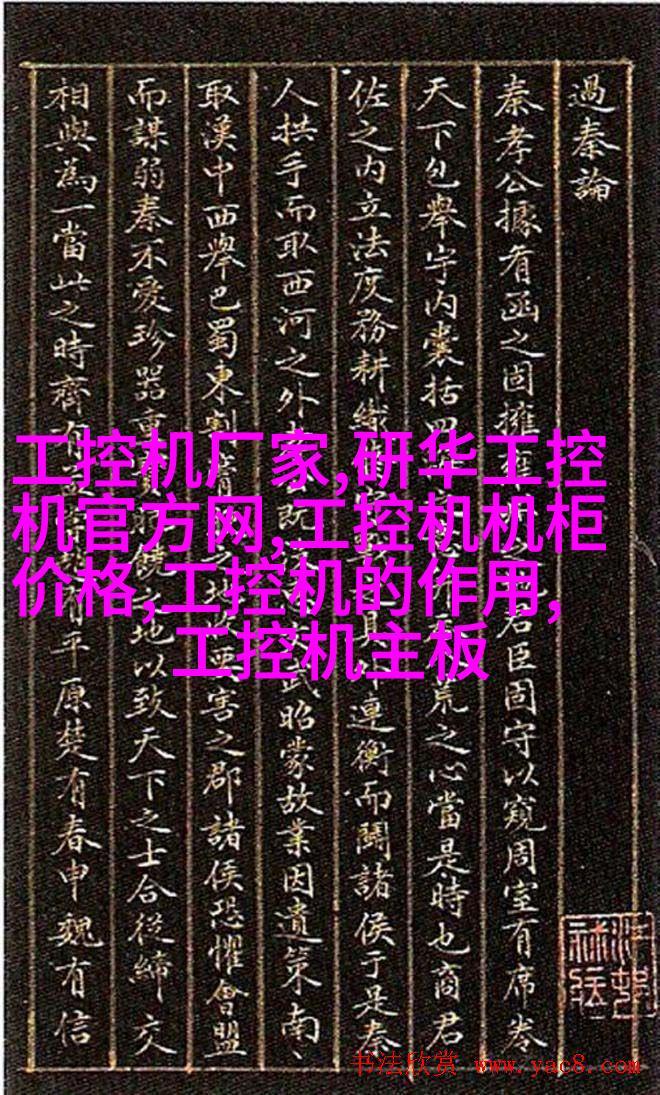 過秦論
秦孝公據有函之固擁君臣固守以窺周室有席卷
天下包舉宇内囊括四荒之心當是時也商君
佐之内立法度務耕織連衡而鬭諸侯于是秦
人拱手而取西河之外武昭蒙故業因遺策南、
取漢中西舉巴蜀東割害之郡諸侯恐懼會盟
而謀弱秦不愛珍器重地以致天下之士合從締交
相與為一當此之時齊有平原楚有春申魏有信
工控机厂家,研华工控
机官方网,工控机机柜
价格,工控机的作用,
工控机主板
书法欣赏 www.yac8.com